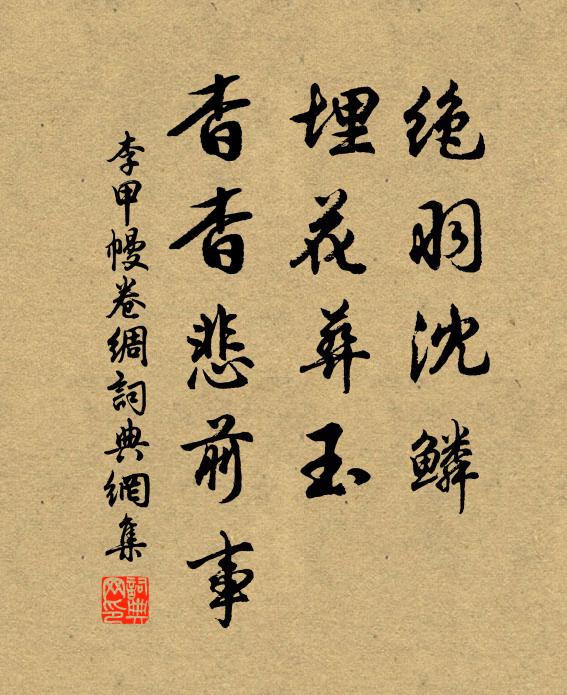 绝羽沈鳞
埋花葬玉
杳杳悲前事
李甲幔卷绸詞典網集
詞典网印